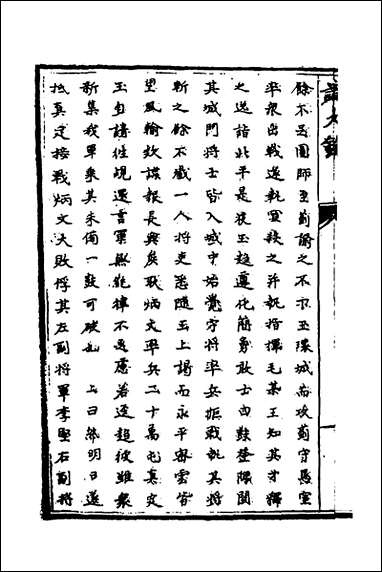 餘不丟圍師至薊諭之不下玉環城而攻薊守馬宣
率衆出戰遂執宣殺之并執指揮毛某王知其才釋
之送詣北平是夜玉趨遵化簡勇敢士由鼓登隙開
其城門將士皆入城中始覺守將率兵拒戰執其將
斬之餘不戮一人將吏悉隨玉上謁而永平密雲皆
望風輸款諜報長興矦耿炳文率兵二十萬屯真定
玉自請往覘還言軍無紀律不足慮若逕趨彼雖衆
新集我軍乘其未備一鼓可破也 上曰然明日遂
抵真定接戰炳文大敗俘其左副將軍李堅右副將